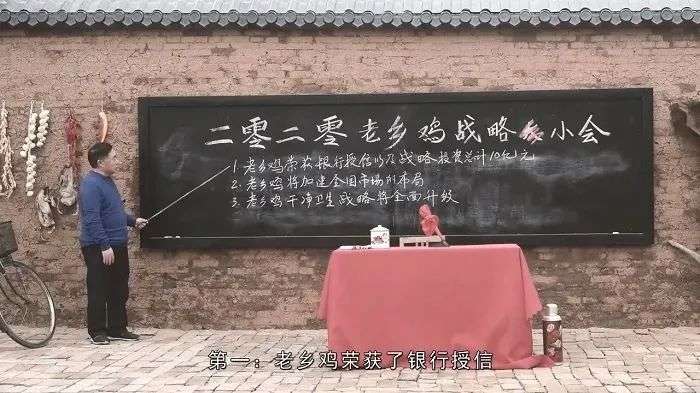 二零二零老乡鸡战略小会
1. 老乡鸡荣获银行授信以及战略投资总计10亿元
2. 老乡鸡将加速全国市场的布局
3. 老乡鸡干净卫生战略将全面升级
第一：老乡鸡荣获了银行授信